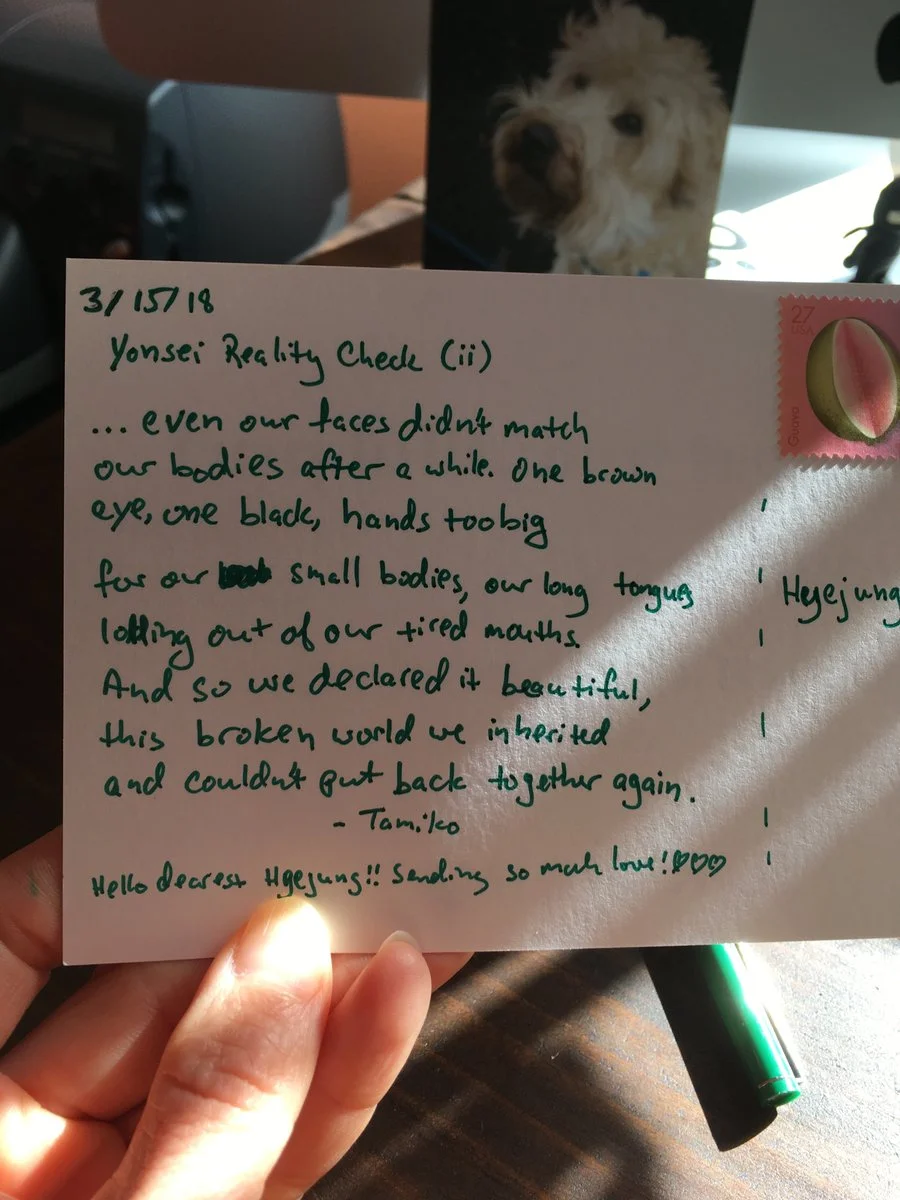 3/15/18
Yonsei Reality Check (ii)
... even our faces didn't match
our bodies after a while. One brown
eye, one black, hands too big
for our small bodies, our long tongues
lolling out of our tired mouths.
And so we declared it beautiful,
this broken world we inherited
and couldn't put back together again.
- Tamiko
Hello dearest Hyejung!! Sending so much love! ♡♡♡
27
USA
Guava
Hyejung